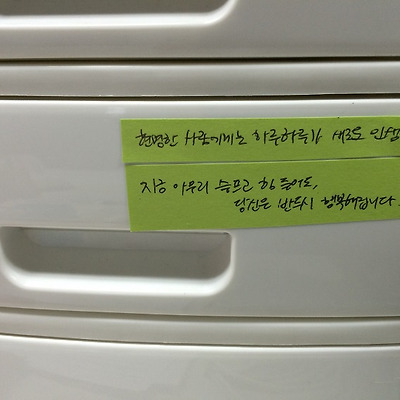 현명한 사람에게는 하루하루가 새로운 인생
지금 아무리 슬프고 힘들어도,
당신은 반드시 행복해집니다.